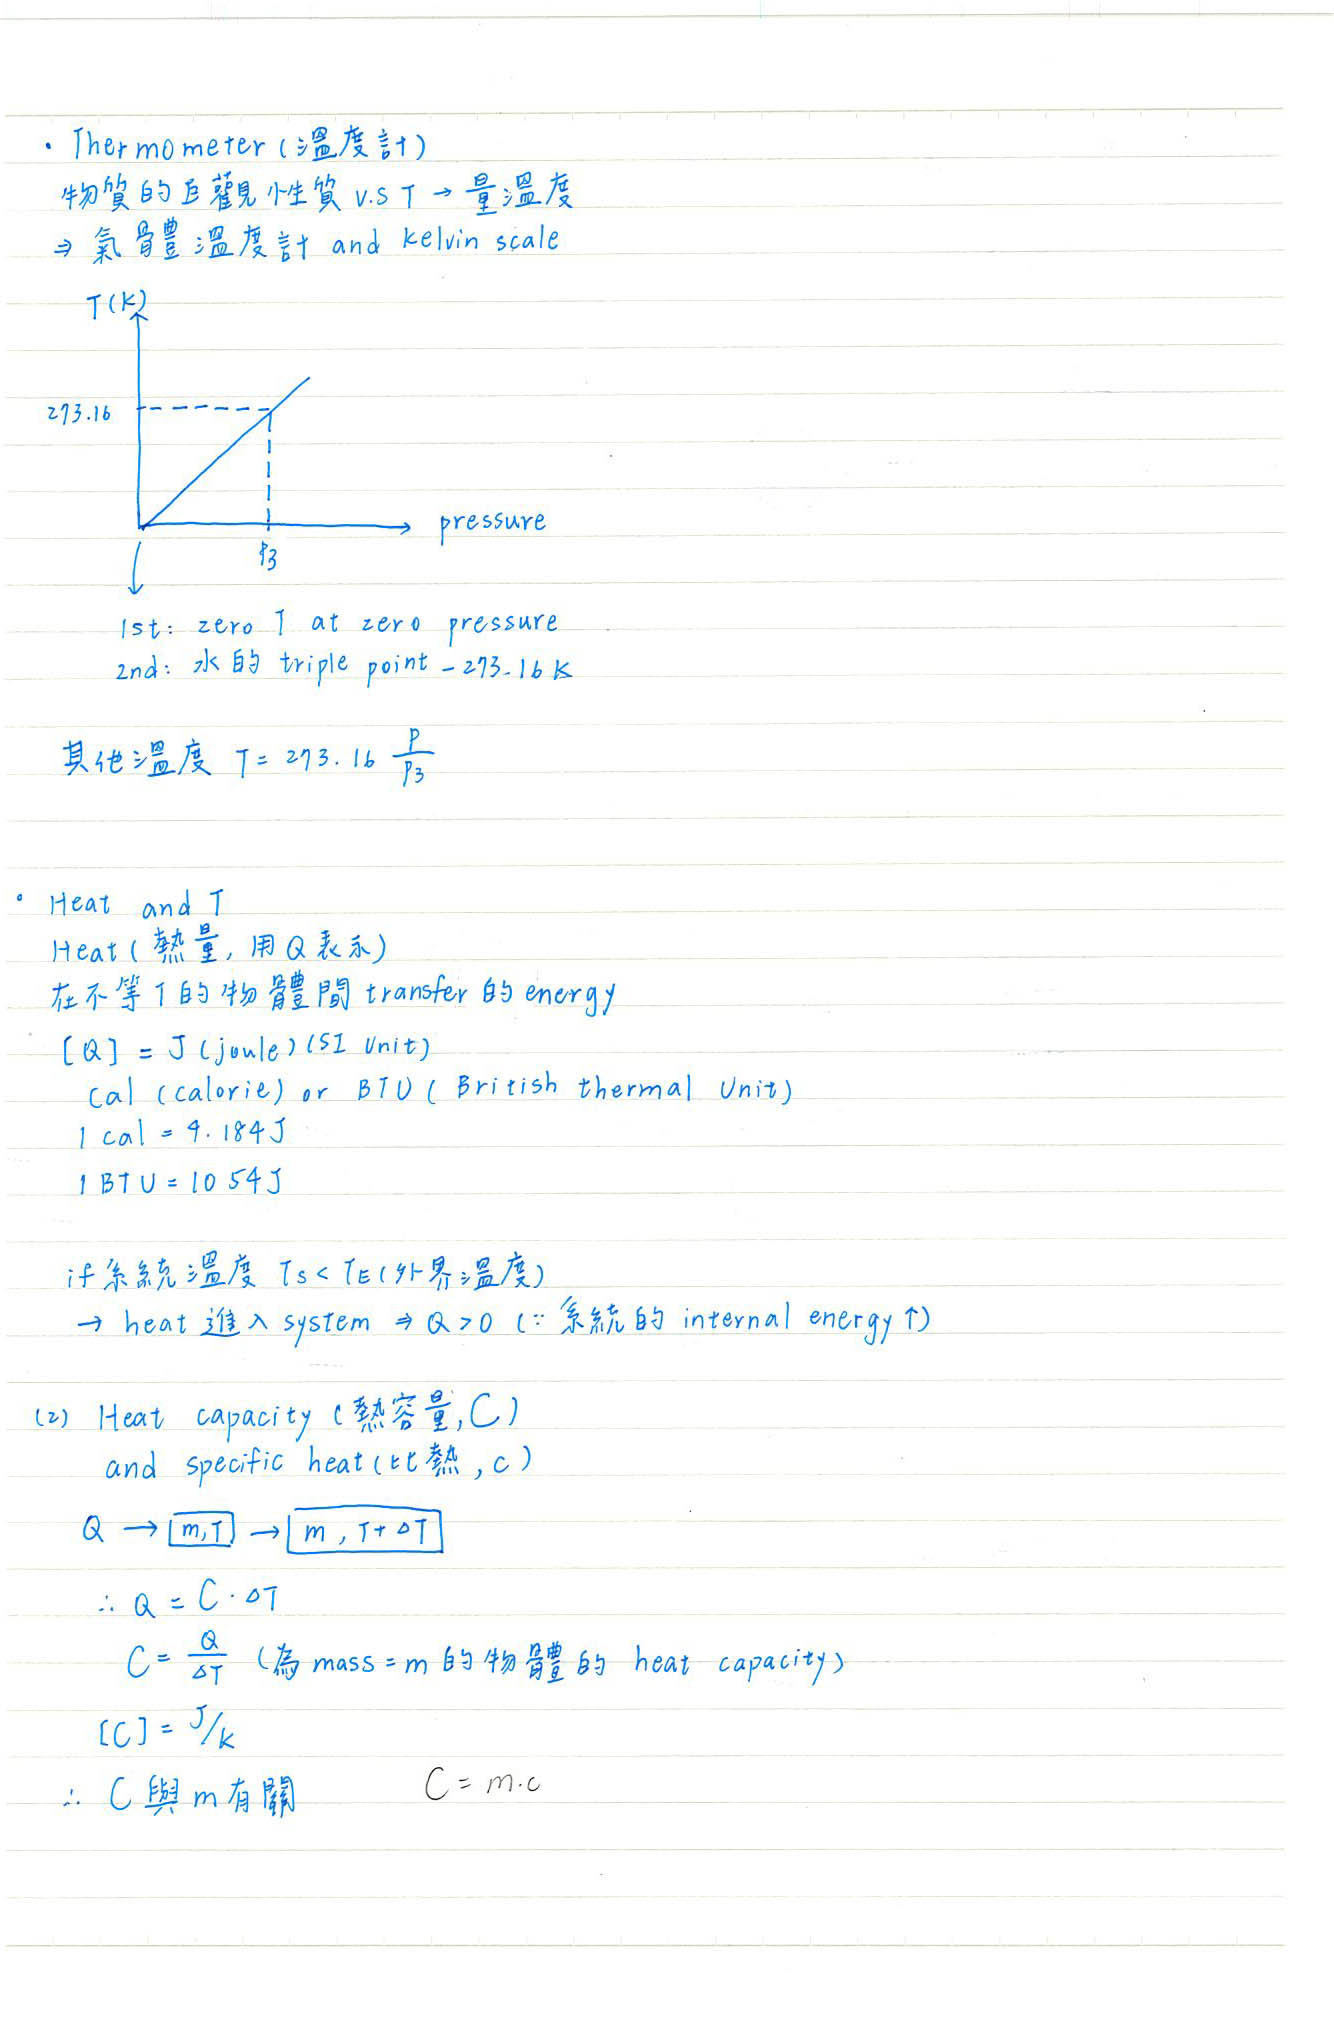 · Thermometer (溫度計)
物質的巨觀性質 v.s T → 量溫度
⇒ 氣體溫度計 and kelvin scale
T(K)
273.16
pressure
P3
1st: zero T at zero pressure
2nd: 水的 triple point - 273.16 K
其他溫度 T = 273.16 P/P3
· Heat and T
Heat (熱量, 用 Q 表示)
在不等 T 的物體間 transfer 的 energy
[Q] = J (joule) (SI Unit)
cal (calorie) or BTU (British thermal Unit)
1 cal = 4.184J
1 BTU = 1054J
if 系統溫度 Ts < TE (外界溫度)
→ heat 進入 system ⇒ Q > 0 (∵ 系統的 internal energy ↑)
(2) Heat capacity (熱容量, C)
and specific heat (比熱, c)
Q → m, T → m, T + ΔT
∴ Q = C · ΔT
C = Q/ΔT (為 mass = m 的物體的 heat capacity)
[C] = J/K
∴ C 與 m 有關 C = m·c